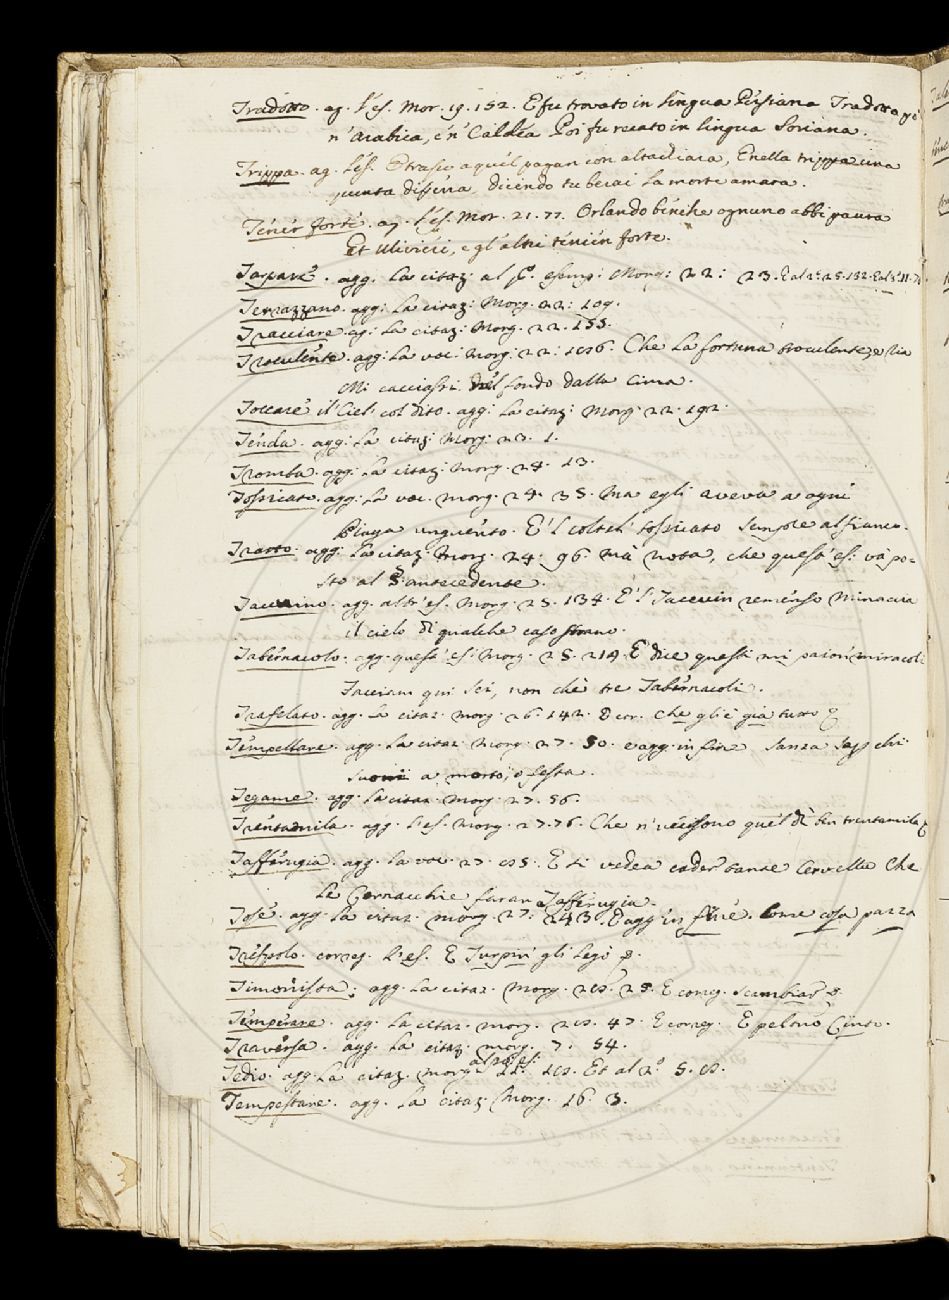 Tradotto. ag. l'es. Mor. 19. 152. E fu trovato in lingua Persiana Tradotto poi
n' Arabica, e'n' Caldea Poi fu recato in lingua Soriana.
Trippa. ag. l'es. E trasse a quel pagan con altacliara, E nella trippa una
punta disserra, dicendo tu berai la morte amara.
Tener forte. ag. l'es. Mor. 21. 77. Orlando benche ognuno abbi paura
Et Ulivieri, e gl'altri tenien forte.
Tarpare. agg. la citaz: al P.° esemp: Morg: 22: 23. E al 2.° 25. 132. E al 3.° 11. 7
Terrazzano. agg: la citaz: Morg. 22: 109.
Tracciare. ag: la citaz: Morg. 22. 155.
Troculente. agg: la voc: Morg: 22: 106. Che la fortuna troculente, e ria
Mi cacciassi nel fondo dalla cima.
Toccare il Ciel col dito. agg: la citaz: Morg. 22. 192.
Tenda. agg: la citaz: Morg: 23. 1.
Tromba. agg: la citaz: Morg. 24. 13.
Tossicato. agg: la voc. Morg. 24. 35. Ma egli aveva a ogni
Piaga unguento. E'l coltel' tossicato sempre al fianco.
Tratto. agg: la citaz: Morg. 24. 96 ma nota, che quest'es: và po=
sto al § antecedente.
Taccuino. agg. altr'es. Morg. 25. 134. E'l Taccuin remenso minaccia
il cielo di qualche caso strano.
Tabernacolo. agg. quest'es: Morg. 25. 214. E dice questi mi paion' miracoli
Facciam qui sei, non chè tre Tabernacoli.
Trafelato. agg. la citaz. Morg. 26. 142. E cor. che gli è già tutto
Tempellare. agg. la citaz. Morg. 27. 50. e agg. in fine sanza saper chi
suoni a morto, o festa.
Tegame. agg. la citaz. Morg. 27. 56.
Trentamila. agg. l'es. Morg. 27. 76. Che n'uccisono quel dì ben trentamila
Tafferugia. agg. la voc. 27. 85. E si vedea cader tante cervella Che
Le Cornacchie faran Tafferugia.
Tosé. agg. la citaz. Morg. 27. 243. E agg in fine. come cosa pazza
Trespolo. correg. l'es. E Turpin gli legò
Timonista. agg. la citaz. Morg. 28. 25. E correg. scambiar
Temperare. agg. la citaz. Morg. 28. 47. E correg. E pe'l suo
Traversa. agg. la citaz. Morg. 7. 54.
al 1.° es:
Tedio. agg. la citaz. Morg. 21. 18. Et al 2.° 5. 8.
Tempestare. agg. la citaz: Morg. 16. 3.